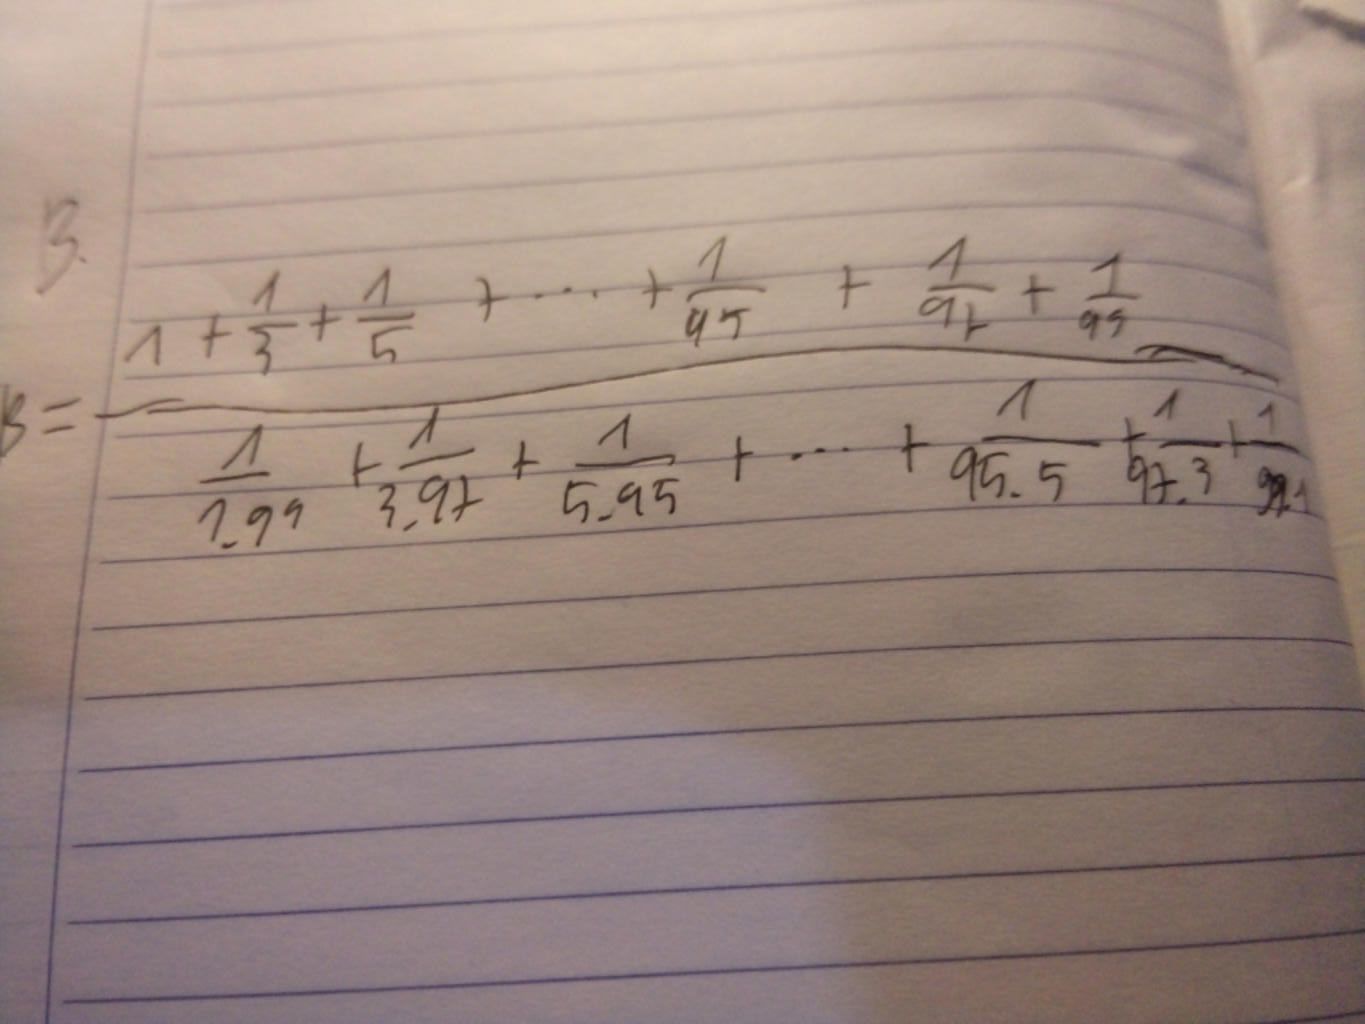 B.
1 + 1/3 + 1/5 + ... + 1/95 + 1/97 + 1/99
B =
1/1.99 + 1/3.97 + 1/5.95 + ... + 1/95.5 + 1/97.3 + 1/99.1